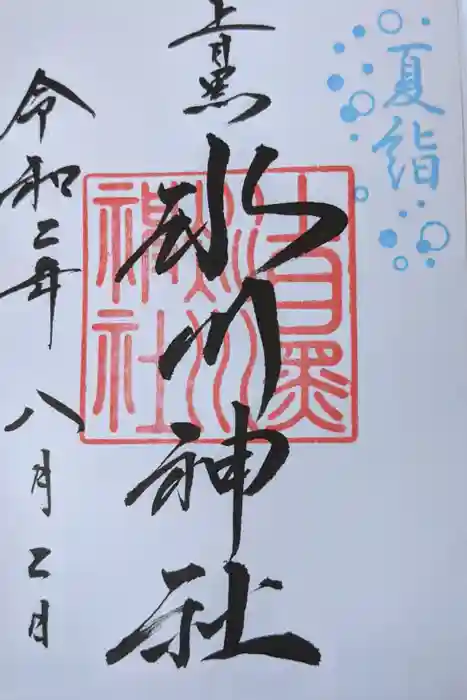 夏詣
上目黒
氷川神社
上目黒
氷川
神社
令和二年八月二日